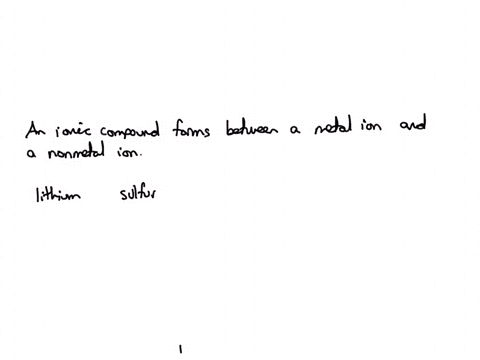 An ionic compound forms between a metal ion and
a nonmetal ion.
lithium sulfur